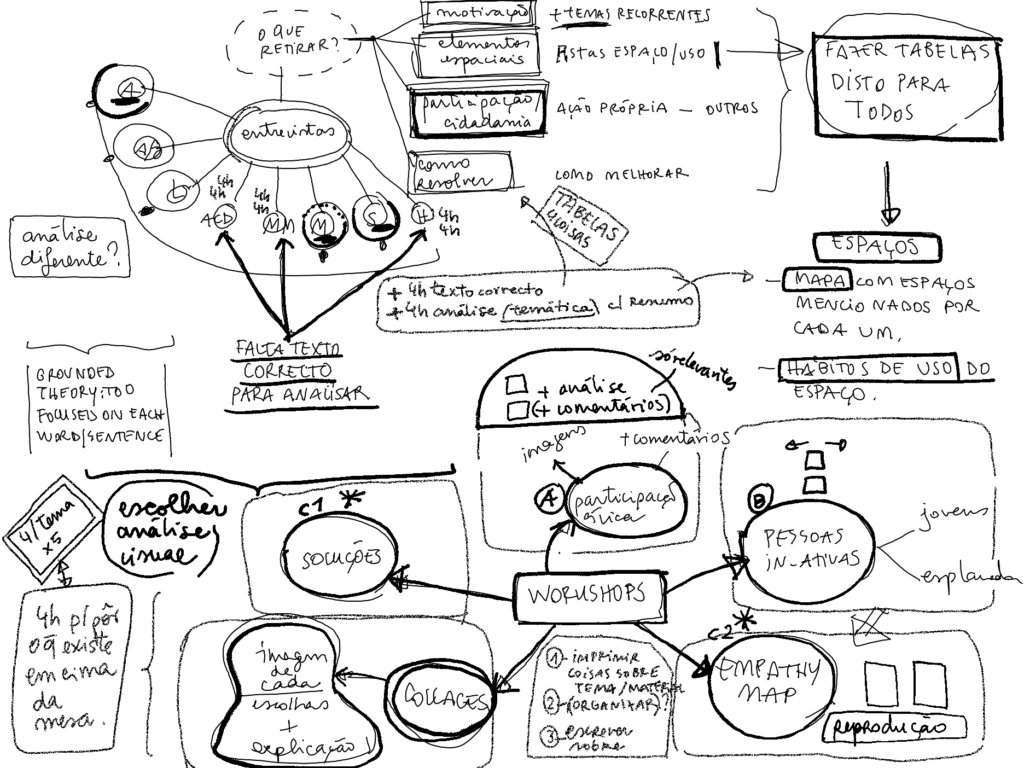 O QUE
RETIRAR?
motivação
+ TEMAS RECORRENTES
elementos
espaciais
listas ESPAÇO/USO
participação/
cidadania
AÇÃO PRÓPRIA — OUTROS
como
resolver
COMO MELHORAR
FAZER TABELAS
DISTO PARA
TODOS
entrevistas
A
A/B
L
4h
4h
AED
4h
4h
MM
M
S
H
4h
4h
análise
diferente?
TABELAS
4COISAS
+ 4h texto correcto
+ 4h análise (temática) c/ resumo
FALTA TEXTO
CORRECTO
PARA ANALISAR
ESPAÇOS
— MAPA COM ESPAÇOS
MENCIONADOS POR
CADA UM.
— HÁBITOS DE USO DO
ESPAÇO.
GROUNDED
THEORY: TOO
FOCUSEIS ON EACH
WORD/SENTENCE
só relevantes
+ análise
(+ comentários)
imagens
+ comentários
A
participaç
cívica
B
PESSOAS
IN-ATIVAS
jovens
esplanada
4/tema
x5
escolher
análise
visual
C1 *
SOLUÇÕES
WORKSHOPS
4h p/ pôr
o q̃ existe
em cima
da
mesa.
imagem
de
cada
escolhas
+
explicação
COLLAGES
1 - IMPRIMIR
COISAS SOBRE
TEMA/MATERIAL
2 - (ORGANIZAR)?
3 - escrever
sobre
C2 *
EMPATHY
MAP
REPRODUÇÃO